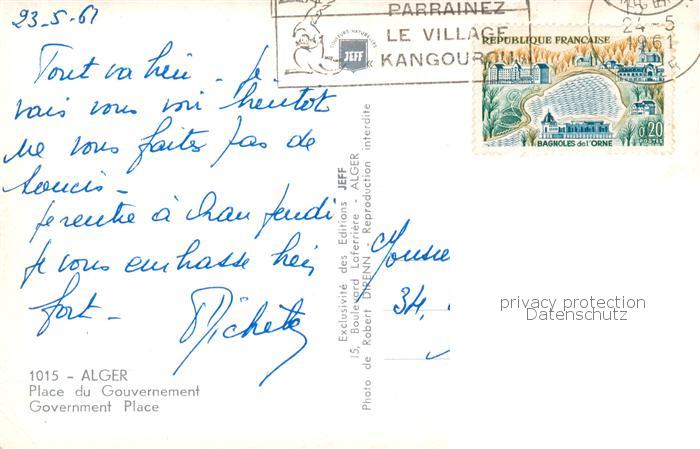 23-5-61
Tout va bien - Je
vais vous voir bientôt
Ne vous faites pas de
soucis -
Je rentre à
Je vous embrasse bien
fort -
1015 - ALGER
Place du Gouvernement
Government Place
PARRAINEZ
LE VILLAGE
KANGOUROU
COULEURS NATURELLES
JEFF
24-5
1961
REPUBLIQUE FRANÇAISE
0,20
POSTES
BAGNOLES de l'ORNE
Exclusivité des Editions JEFF
15, Boulevard Laferrière - ALGER
Photo de Robert DIRENN - Reproduction interdite
Monsie
34,
privacy protection
Datenschutz